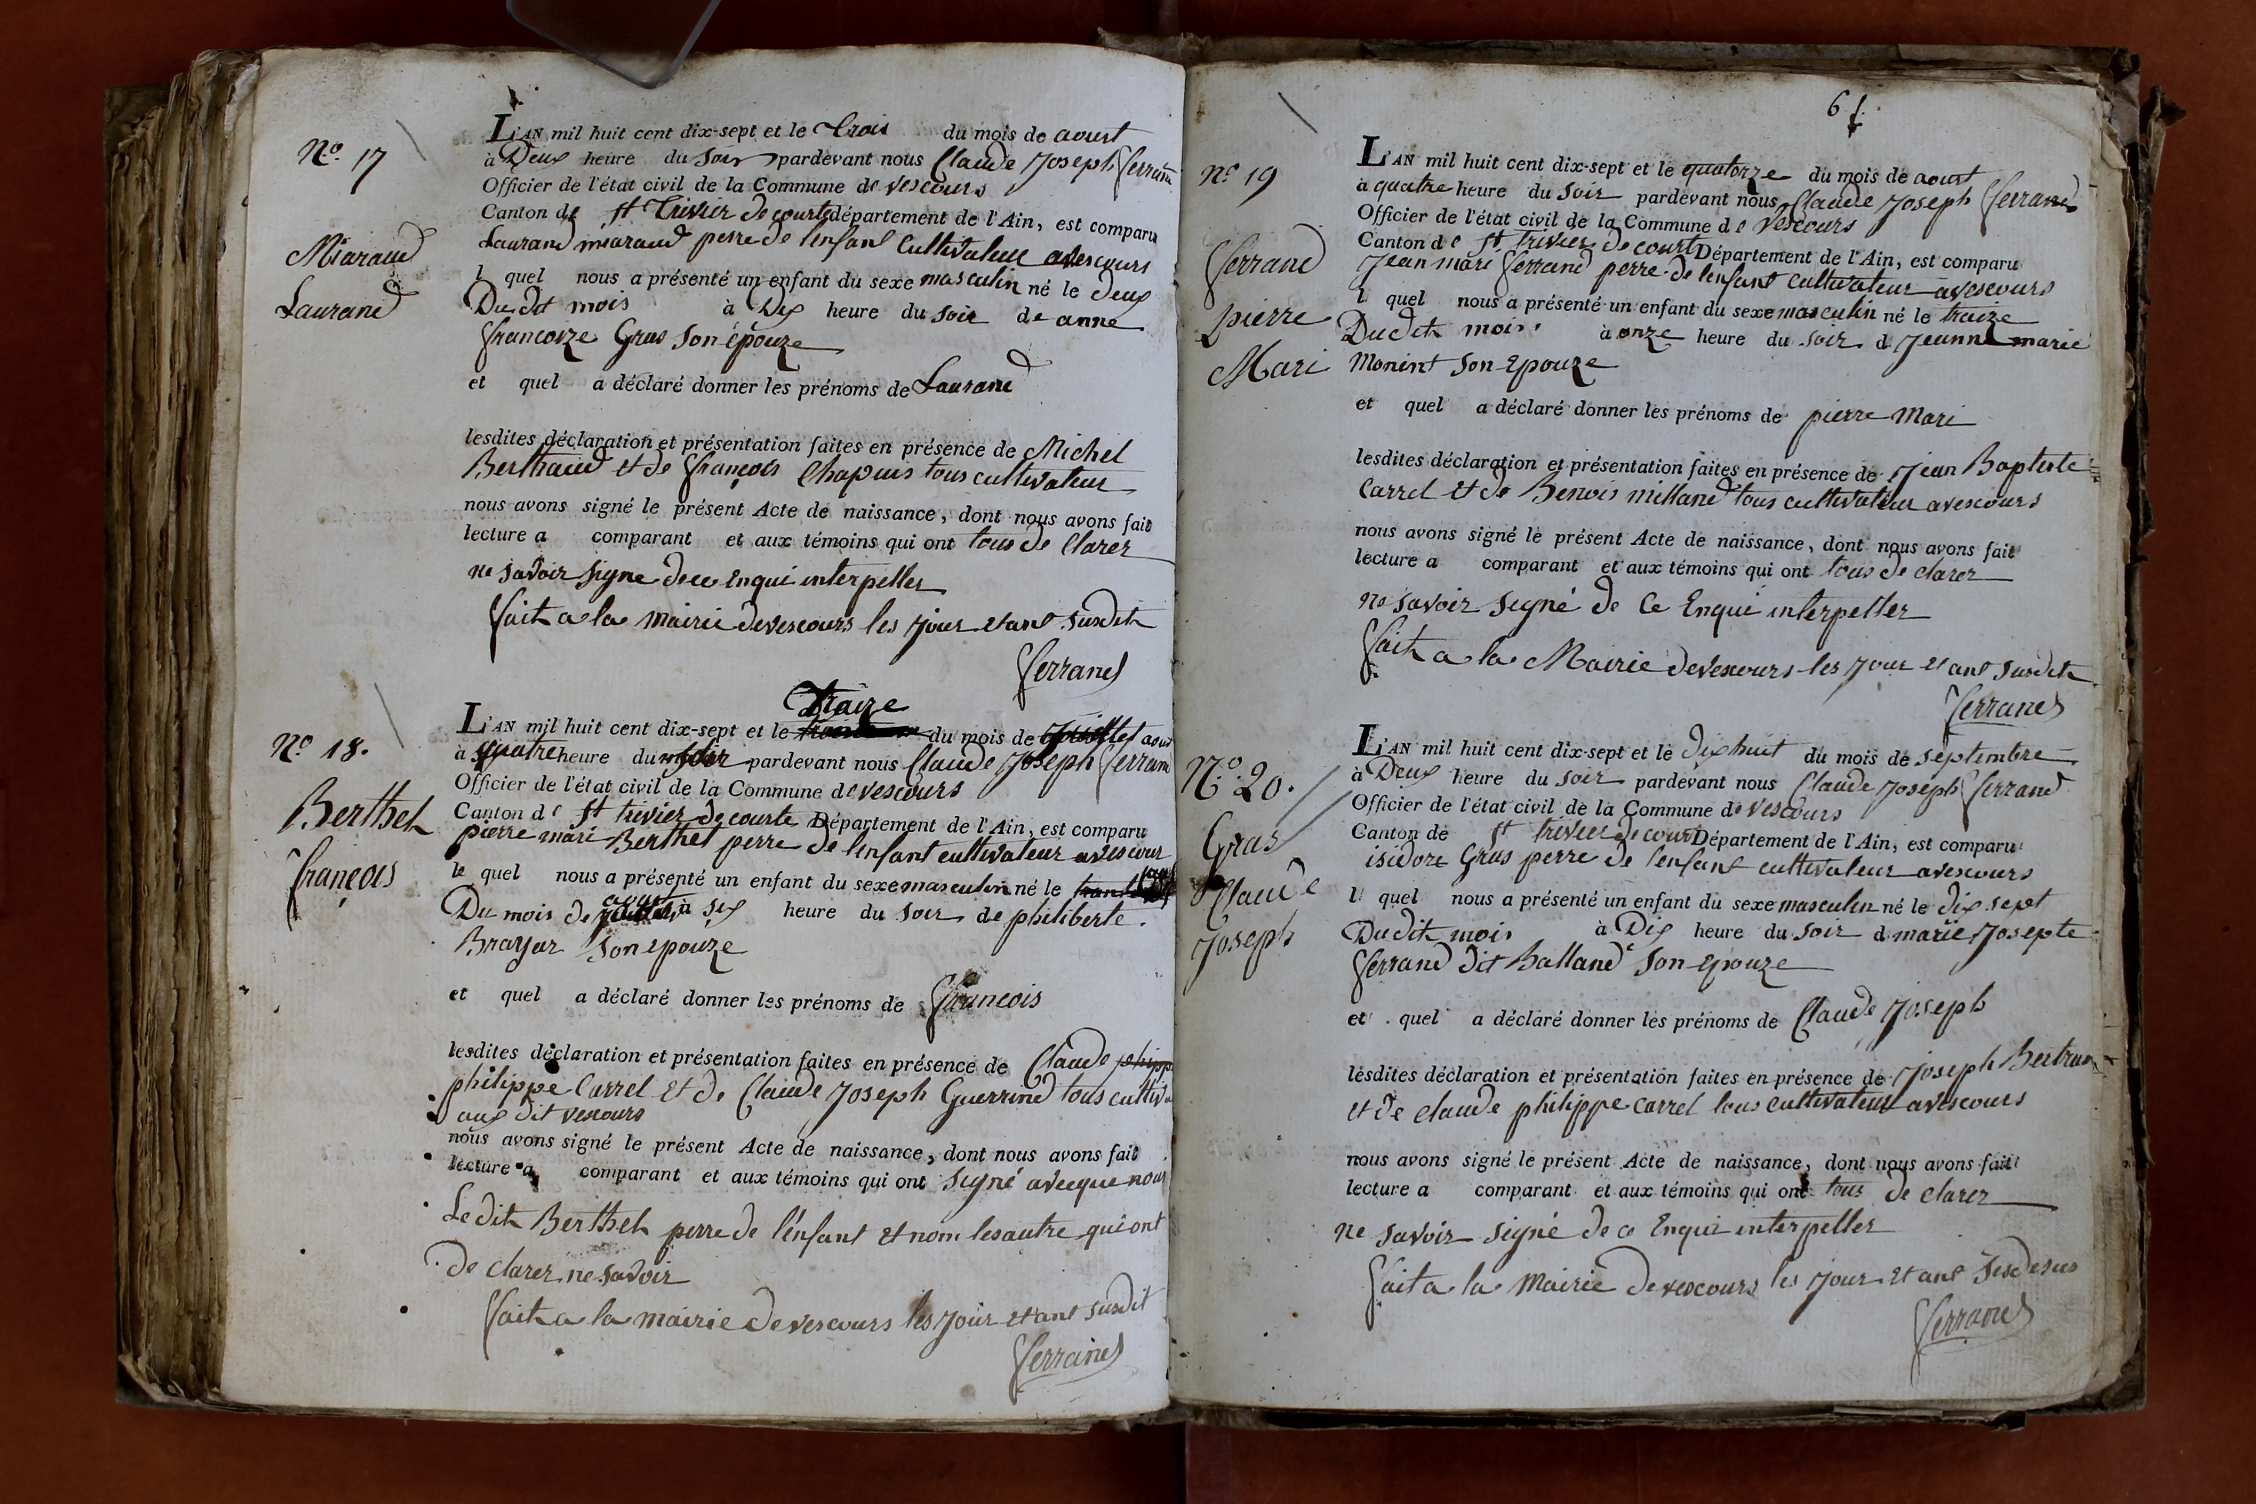 N.o 17
Miaraud
Laurand
L'AN mil huit cent dix-sept et le trois du mois de aoust
à Deux heure du Soir pardevant nous Claude Joseph ferrand
Officier de l'état civil de la Commune de vescours
Canton de st Trivier de courte département de l'Ain, est comparu
Laurand miaraud perre de lenfant Cultivateur avescours
l quel nous a présenté un enfant du sexe masculin né le deux
Dudit mois à Dix heure du soir de anne
francoize Gras Son épouze
et quel a déclaré donner les prénoms de Laurand
lesdites déclaration et présentation faites en présence de Michel
Berthaud et de françois Chapuis tous cultivateur
nous avons signé le présent Acte de naissance, dont nous avons fait
lecture a comparant et aux témoins qui ont tous de Clarer
ne savoir signe dece Enqui interpeller
fait a la mairie devescours les jour et ant susdit
ferrand
N.o 18.
Berthet
françois
Traize
L'AN mil huit cent dix-sept et le du mois de juillet aout
à quatre heure du soir pardevant nous Claude Joseph ferrand
Officier de l'état civil de la Commune de vescours
Canton de st trivier de courte Département de l'Ain, est comparu
pierre mari Berthet perre de lenfant cultivateur avescour
le quel nous a présenté un enfant du sexe masculin né le
Du mois de aout à six heure du soir de philiberte
Brayar Son epouze
et quel a déclaré donner les prénoms de francois
lesdites déclaration et présentation faites en présence de Claude phipp
philippe Carrel et de Claude Joseph Guerrind tous cultiva
aux dit vescours
nous avons signé le présent Acte de naissance, dont nous avons fait
lecture a comparant et aux témoins qui ont signé avecque nous
Ledit Berthet perre de lénfant et nom lesautre qui ont
de clarer ne savoir
fait a la mairie devescours les jour et ant susdit
ferrand
6 f.
n.o 19
ferrand
pierre
Mari
L'AN mil huit cent dix-sept et le quatorze du mois de aoust
à quatre heure du soir pardevant nous Claude Joseph ferrand
Officier de l'état civil de la Commune de vescours
Canton de st trivier de court Département de l'Ain, est comparu
Jean mari ferrand perre de lenfant cultivateur avescours
l quel nous a présenté un enfant du sexe masculin né le traize
Dudit mois à onze heure du soir d Jeanne marie
Monint son epouze
et quel a déclaré donner les prénoms de pierre mari
lesdites déclaration et présentation faites en présence de Jean Baptiste
Carrel et de Benois milland tous cultivateur avescours
nous avons signé le présent Acte de naissance, dont nous avons fait
lecture a comparant et aux témoins qui ont tous de clarer
ne savoir signé de Ce Enqui interpeller
fait a la Mairie devescours les jour et ant susdit
ferrand
N.o 20.
Gras
Claude
Joseph
L'AN mil huit cent dix-sept et le dix huit du mois de septembre
à Deux heure du soir pardevant nous Claude Joseph ferrand
Officier de l'état civil de la Commune de vescours
Canton de st trivier de court Département de l'Ain, est comparu
isidore Gras perre de lenfant cultivateur avescours
l quel nous a présenté un enfant du sexe masculin né le dix sept
Dudit mois à Dix heure du soir d marie Josepte
ferrand dit Balland son epouze
et quel a déclaré donner les prénoms de Claude Joseph
lesdites déclaration et présentation faites en présence de Joseph Bertrand
et de claude philippe carrel tous cultivateur avescours
nous avons signé le présent Acte de naissance, dont nous avons fait
lecture a comparant et aux témoins qui ont tous de clarer
ne savoir signé de ce Enqui interpeller
fait a la mairie devescours les jour et ant susdesus
ferrand